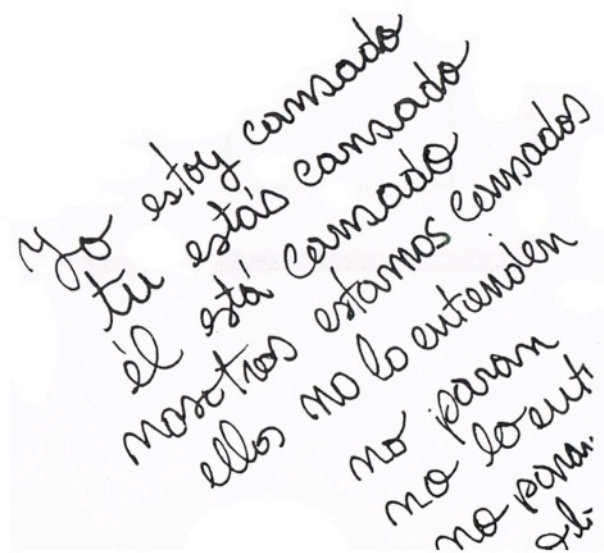 Yo estoy cansado
tu estás cansado
él está cansado
nosotros estamos cansados
ellos no lo entienden
no paran
no lo enti
no paran